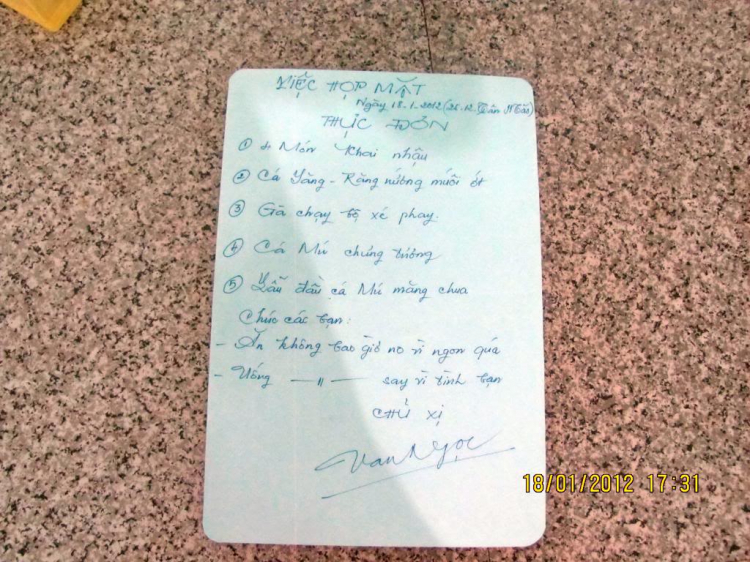 TIỆC HỌP MẶT
Ngày 18.1.2012 (25.12. Tân Mão)
THỰC ĐƠN
① 4 Món khai nhậu
② Cá Răng nướng muối ớt
③ Gà chạy bộ xé phay.
④ Cá Mú chưng tương
⑤ Lẩu đầu cá Mú măng chua
Chúc các bạn:
- Ăn không bao giờ no vì ngon quá
- Uống —〃— say vì tình bạn
CHỦ XỊ
Van Ngọc
18/01/2012 17:31